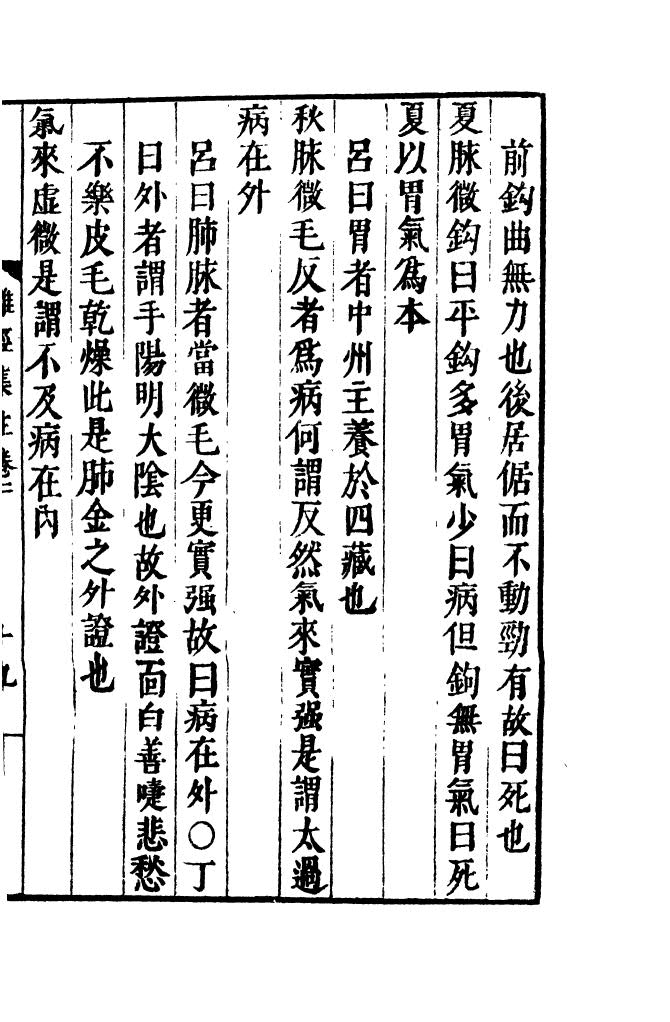 前鈎曲無力也後居倨而不動勁有故曰死也
夏脉微鈎曰平鈎多胃氣少曰病但鈎無胃氣曰死
夏以胃氣爲本
呂曰胃者中州主養於四藏也
秋脉微毛反者爲病何謂反然氣來實强是謂太過
病在外
呂曰肺脉者當微毛今更實强故曰病在外○丁
曰外者謂手陽明大陰也故外證面白善嚏悲愁
不樂皮毛乾燥此是肺金之外證也
氣來虛微是謂不及病在內
難經集注卷二
十九